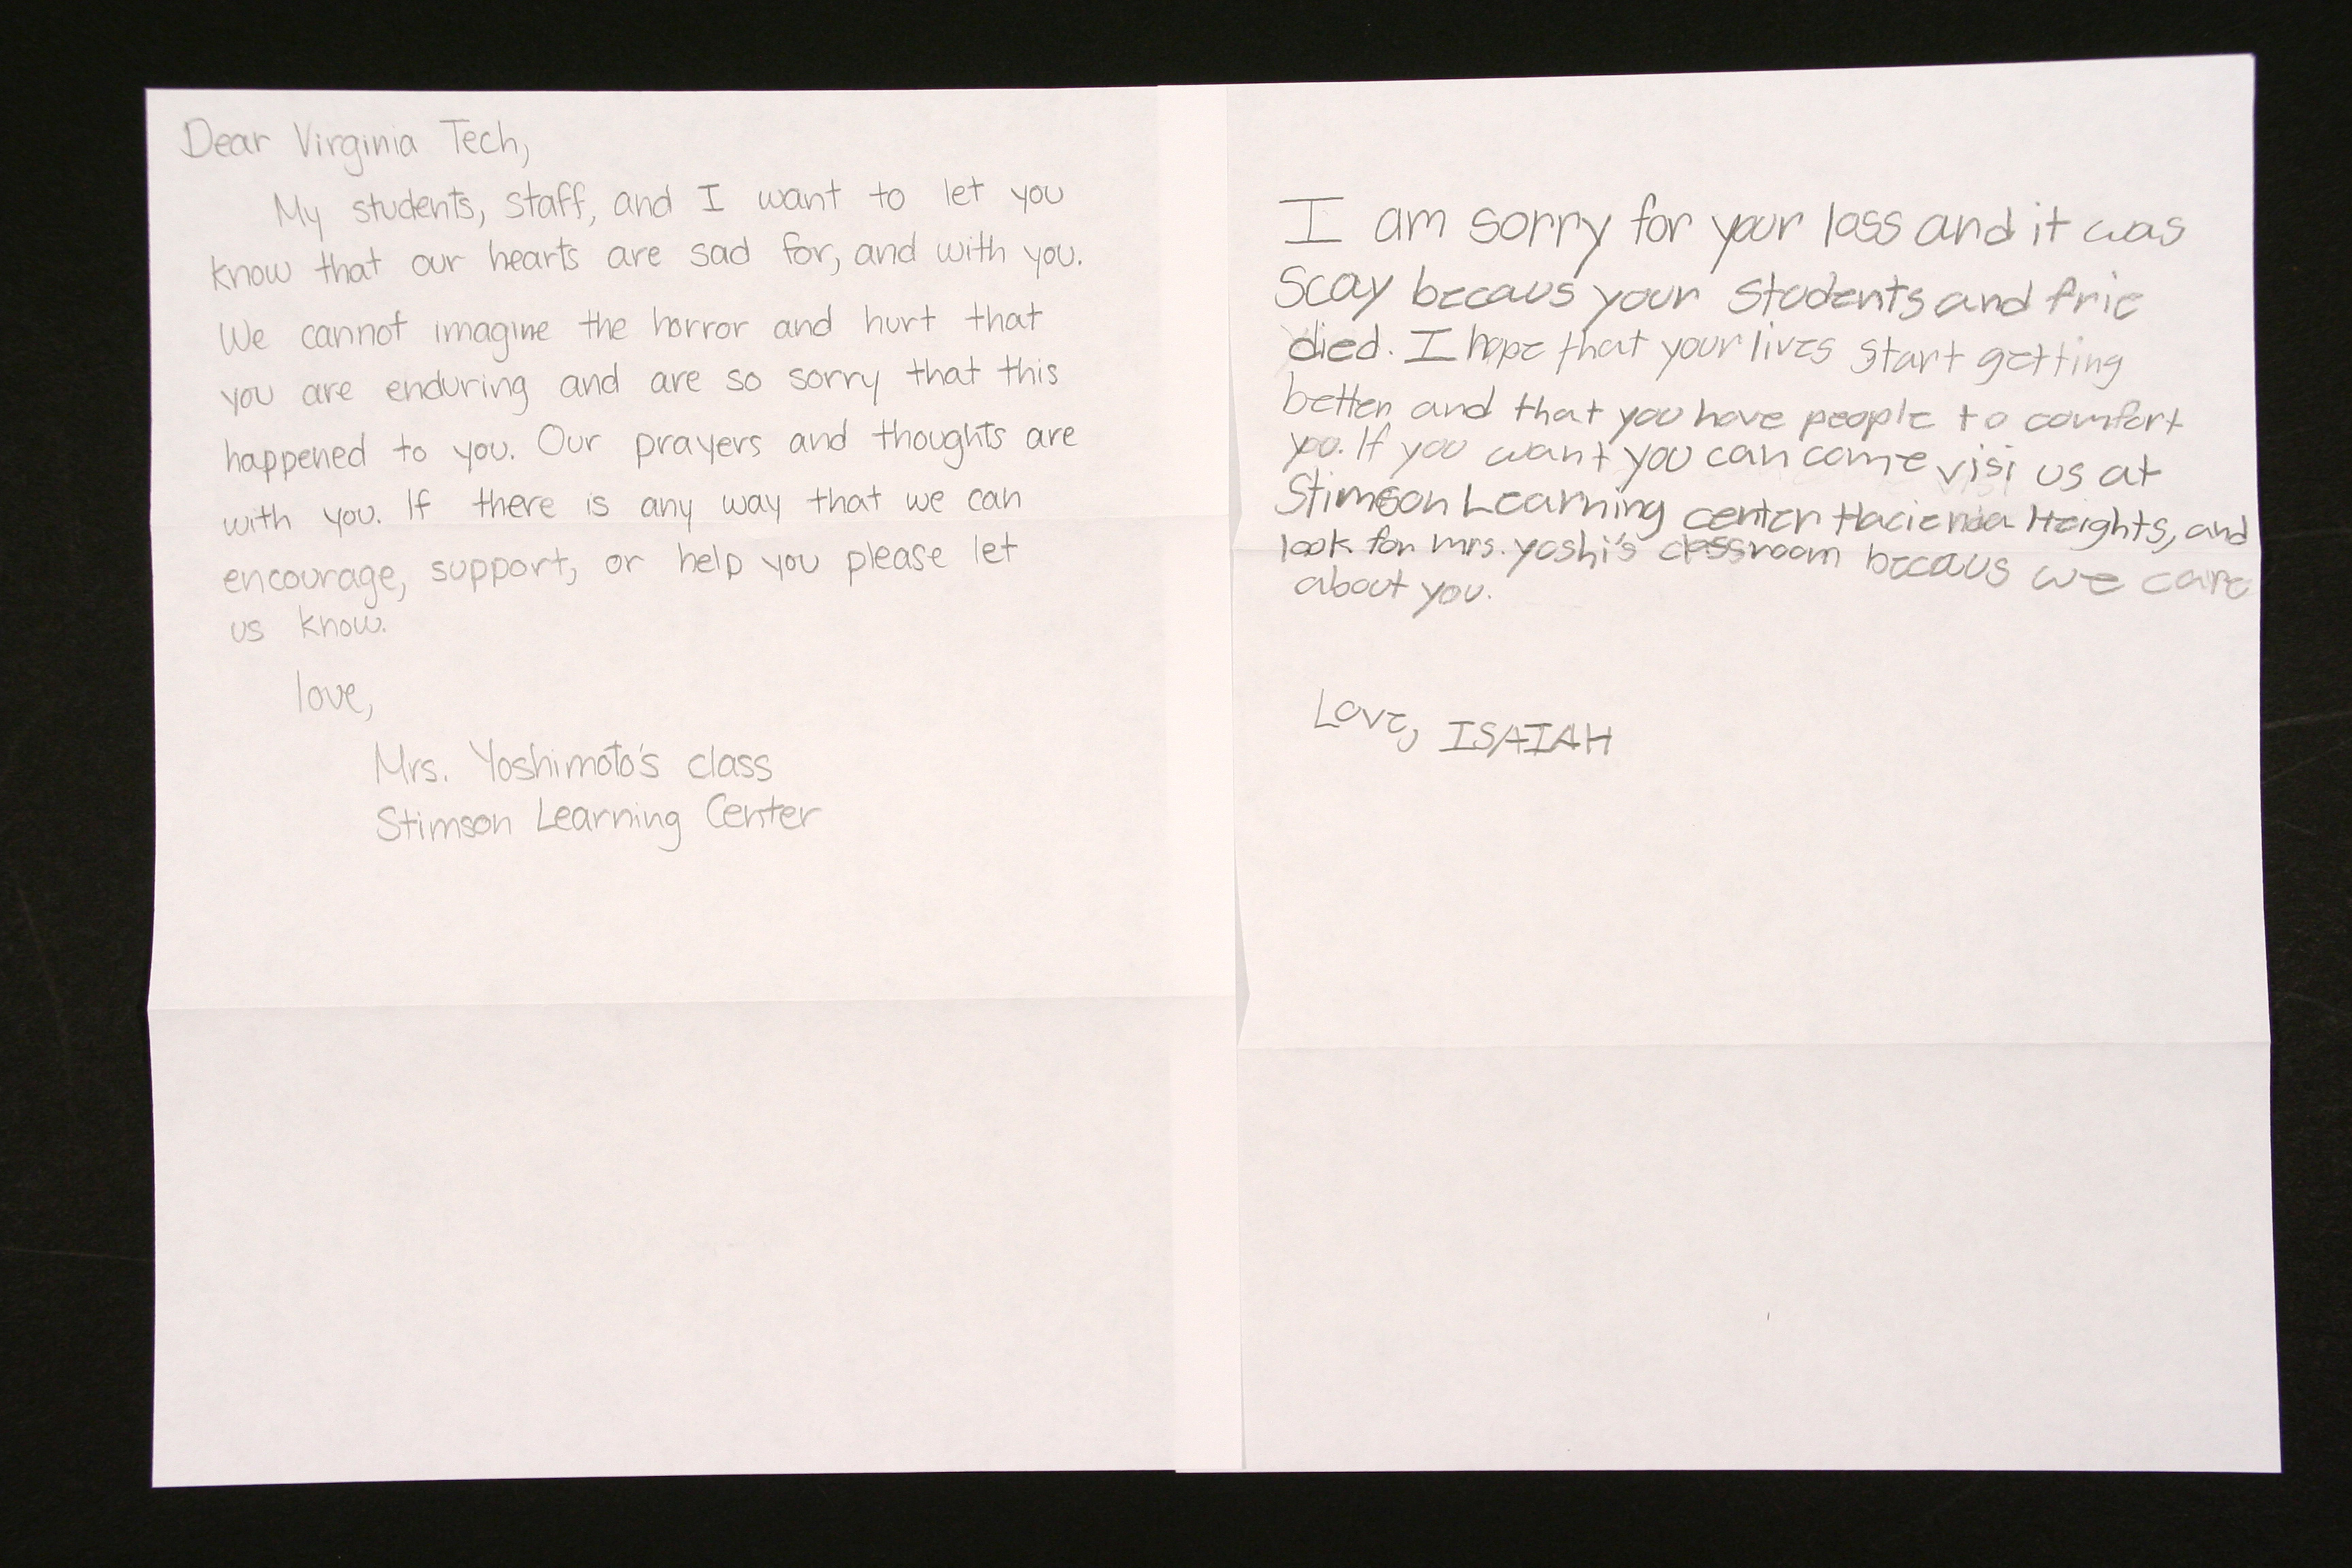 Dear Virginia Tech,
My students, staff, and I want to let you
know that our hearts are sad for, and with you.
We cannot imagine the horror and hurt that
you are enduring and are so sorry that this
happened to you. Our prayers and thoughts are
with you. If there is any way that we can
encourage, support, or help you please let
us know.
love,
Mrs. Yoshimoto's class
Stimson Learning Center
I am sorry for your loss and it was
scay becaus your students and frie
died. I hope that your lives start getting
better and that you have people to comfort
you. If you want you can come visi us at
Stimson Learning center Hacienda Heights, and
look for mrs. yoshi's classroom becaus we care
about you.
Love, ISAIAH